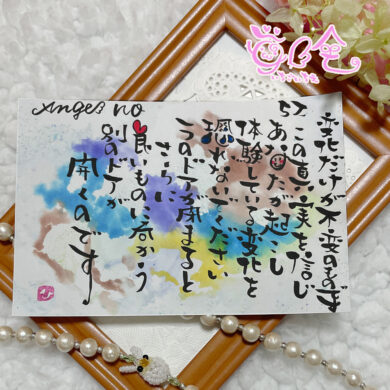 Angel no
52
変化だけが不変の
この真実を信じ
あなたが起こし
体験している変化を
恐れないでください
1つのドアが閉まると
さらに
良いものに向かう
別のドアが
開くのです